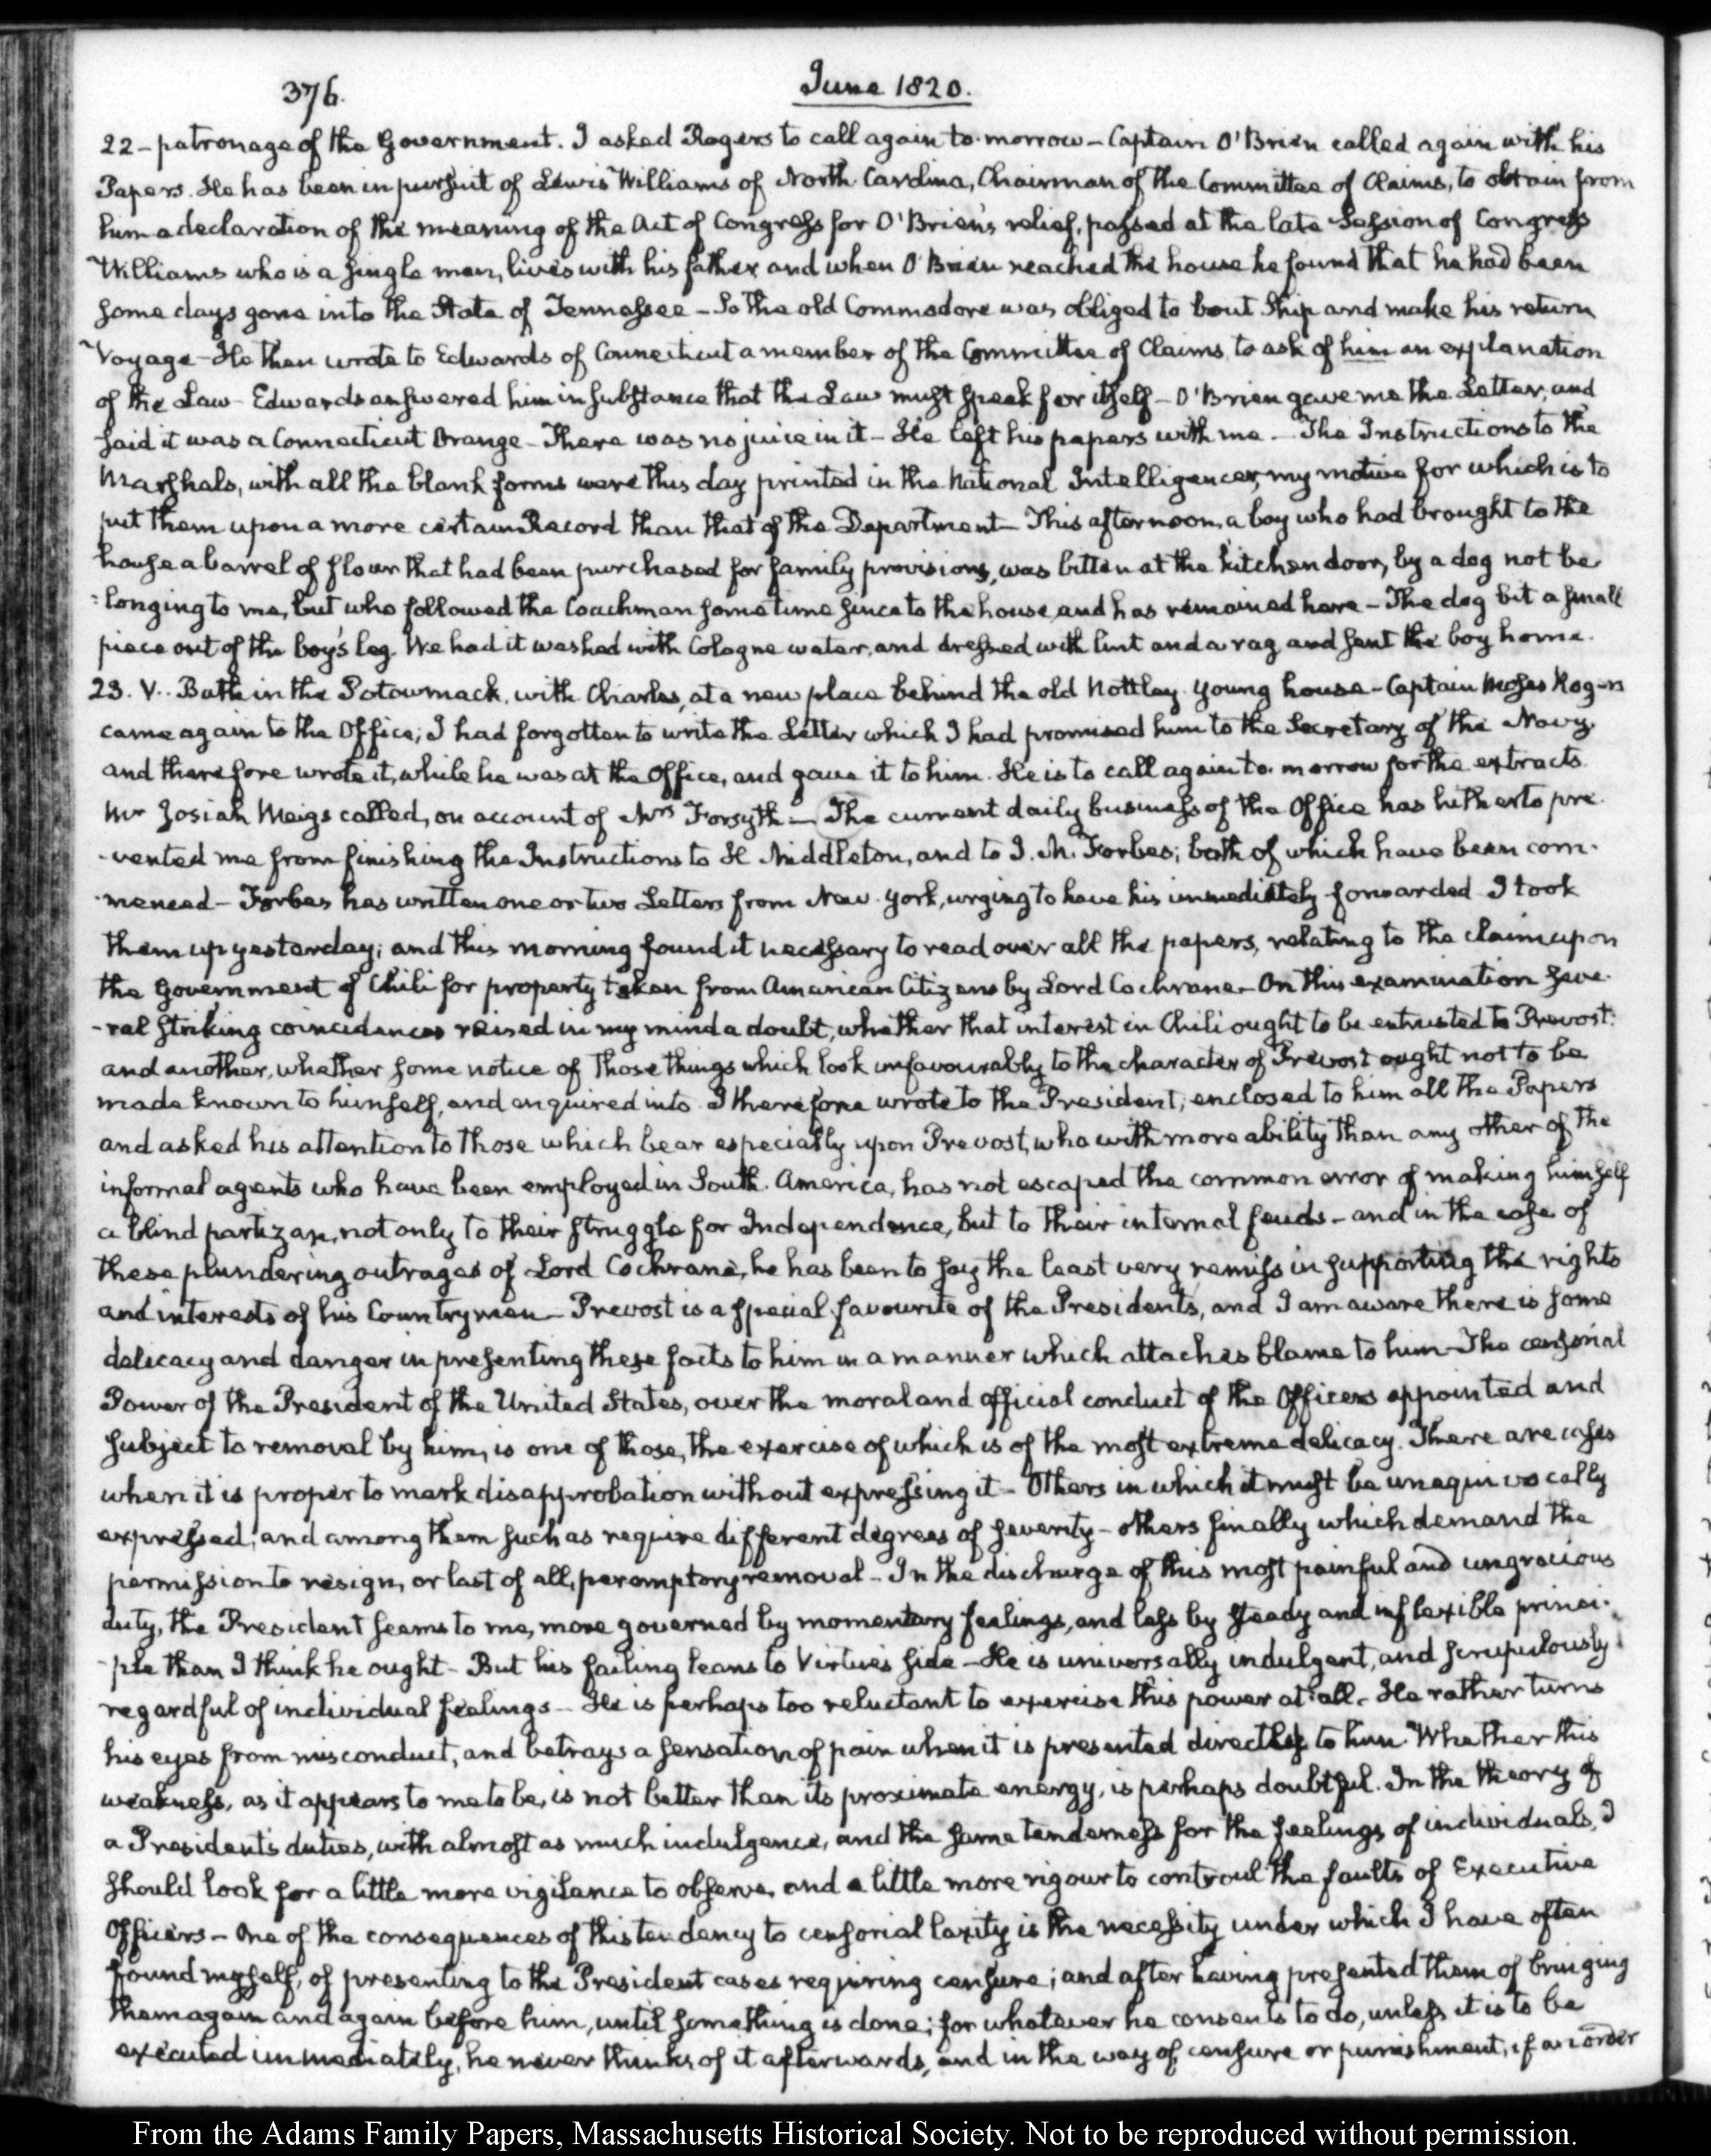 376.
June 1820.
22 - patronage of the Government. I asked Rogers to call again to-morrow - Captain O'Brien called again with his
Papers. He has been in pursuit of Lewis Williams of North-Carolina, Chairman of the Committee of Claims, to obtain from
him a declaration of the meaning of the Act of Congress for O'Brien's relief, passed at the late Session of Congress
Williams who is a single man, lives with his father and when O'Brien reached the house he found that he had been
some days gone into the State of Tennessee - So the old Commodore was obliged to bout Ship and make his return
Voyage - He then wrote to Edwards of Connecticut a member of the Committee of Claims, to ask of him an explanation
of the Law - Edwards answered him in substance that the Law must speak for itself - O'Brien gave me the Letter, and
said it was a Connecticut Orange - There was no juice in it - He left his papers with me - The Instructions to the
Marshals, with all the blank forms were this day printed in the National Intelligencer, my motive for which is to
put them upon a more certain Record than that of the Department - This afternoon, a boy who had brought to the
house a barrel of flour that had been purchased for family provisions, was bitten at the kitchen door, by a dog not be
:longing to me, but who followed the Coachman some time since to the house, and has remained here - The dog bit a small
piece out of the boy's leg. We had it washed with Cologne water, and dressed with lint and a rag, and sent the boy home.
23. V.. Bath in the Potowmack, with Charles, at a new place behind the old Nottley Young house - Captain Moses Rogers
came again to the Office; I had forgotten to write the Letter which I had promised him to the Secretary of the Navy,
and therefore wrote it, while he was at the Office, and gave it to him. He is to call again to-morrow for the extracts.
Mr Josiah Meigs called, on account of Mrs Forsyth - The current daily business of the Office has hitherto pre-
-vented me from finishing the Instructions to H. Middleton, and to J. M. Forbes; both of which have been com-
-menced - Forbes has written one or two Letters from New-York, urging to have his immediately forwarded I took
them up yesterday; and this morning found it necessary to read over all the papers, relating to the claim upon
the Government of Chili for property taken from American Citizens by Lord Cochrane - On this examination seve-
-ral striking coincidences raised in my mind a doubt, whether that interest in Chili ought to be entrusted to Prevost:
and another, whether some notice of those things which look unfavourably to the character of Prevost ought not to be
made known to himself, and enquired into. I therefore wrote to the President, enclosed to him all the Papers
and asked his attention to those which bear especially upon Prevost, who with more ability than any other of the
informal agents who have been employed in South-America, has not escaped the common error of making himself
a blind partizan, not only to their struggle for Independence, but to their internal feuds - and in the case of
these plundering outrages of Lord Cochrane, he has been to say the least very remiss in supporting the rights
and interests of his Countrymen - Prevost is a special favourite of the Presidents, and I am aware there is some
delicacy and danger in presenting these facts to him in a manner which attaches blame to him - The censorial
Power of the President of the United States, over the moral and official conduct of the Officers appointed and
subject to removal by him, is one of those, the exercise of which is of the most extreme delicacy. There are cases
when it is proper to mark disapprobation without expressing it - Others in which it must be unequivocally
expressed; and among them such as require different degrees of severity - others finally which demand the
permission to resign, or last of all, peremptory removal - In the discharge of this most painful and ungracious
duty, the President seems to me, more governed by momentary feelings, and less by steady and inflexible princi-
-ple than I think he ought - But his failing leans to Virtue's side - He is universally indulgent, and scrupulously
regardful of individual feelings - He is perhaps too reluctant to exercise this power at all. He rather turns
his eyes from misconduct, and betrays a sensation of pain when it is presented directly to him. Whether this
weakness, as it appears to me to be, is not better than its proximate energy, is perhaps doubtful. In the theory of
a President's duties, with almost as much indulgence, and the same tenderness for the feelings of individuals, I
should look for a little more vigilance to observe, and a little more rigour to controul the faults of Executive
Officers - One of the consequences of this tendency to censorial laxity is the necessity under which I have often
found myself, of presenting to the President cases requiring censure; and after having presented them of bringing
them again and again before him, until something is done; for whatever he consents to do, unless it is to be
executed immediately, he never thinks of it afterwards, and in the way of censure or punishment, if an order
From the Adams Family Papers, Massachusetts Historical Society. Not to be reproduced without permission.